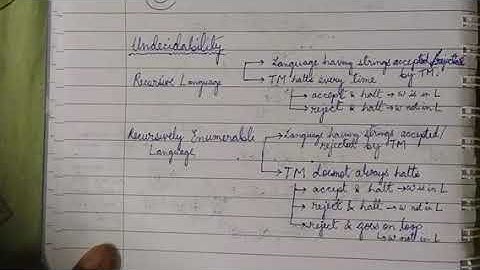 Undecidability
Recursive Language
Language having strings accepted/rejected by TM.
TM halts every time
accept & halt → w is in L
reject & halt → w not in L
Recursively Enumerable Language
Language having strings accepted/
rejected by TM
TM doesnot always halts
accept & halt → w is in L
reject & halt → w not in L
reject & goes on loop
↳ w not in L